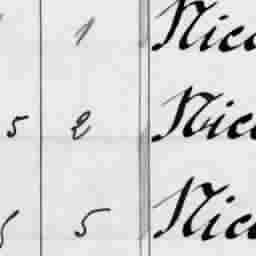 1 Nico
5 2 Nico
5 5 Nico